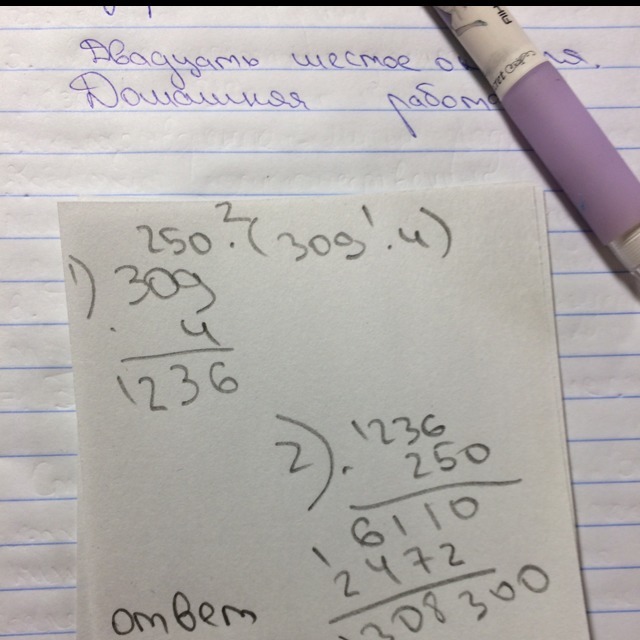 Двадцать шестое
Домашняя работа
250 · (309 · 4)
2 1
1) 309
· 4
1236
2) · 1236
250
6110
1
2472
308300
ответ